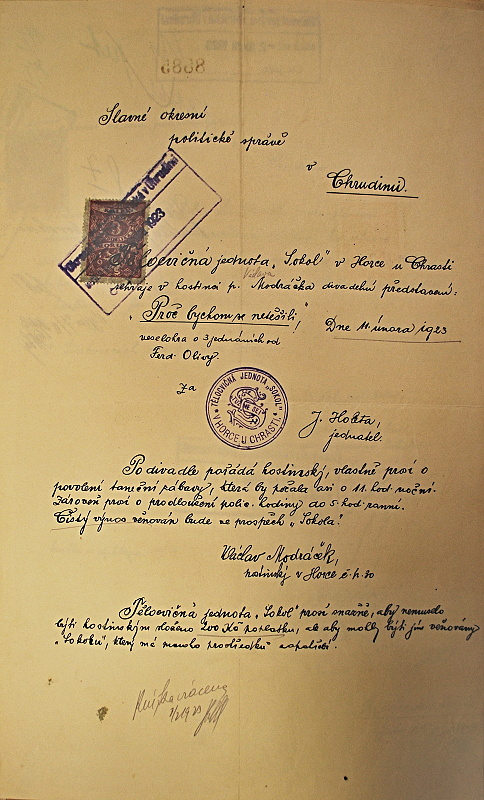 Slavné okresní
politické správě
v
Chrudimi.
Tělocvičná jednota „Sokol" v Horce u Chrasti
v hostinci p. Václava Modráčka divadelní představení:
„Proč bychom se netěšili",
Dne 11. února 1923
veselohra o 3 jednáních od
Ferd. Olivy.
Za
TĚLOCVIČNÁ JEDNOTA „SOKOL"
V HORCE U CHRASTI.
J. Holeta,
jednatel.
Po divadle pořádá hostinský, vlastně prosí o
povolení taneční zábavy, která by počala asi o 11. hod noční.
Zároveň prosí o prodloužení polic. hodiny do 5. hod. ranní.
Čistý výnos věnován bude ve prospěch „Sokola".
Václav Modráček,
hostinský v Horce č. p. 30
Tělocvičná jednota „Sokol" prosí snažně, aby nemuselo
býti hostinským složeno 200 Kč poplatku, ale aby mohly býti jím věnovány
„Sokolu", který má mnoho
8685
1923